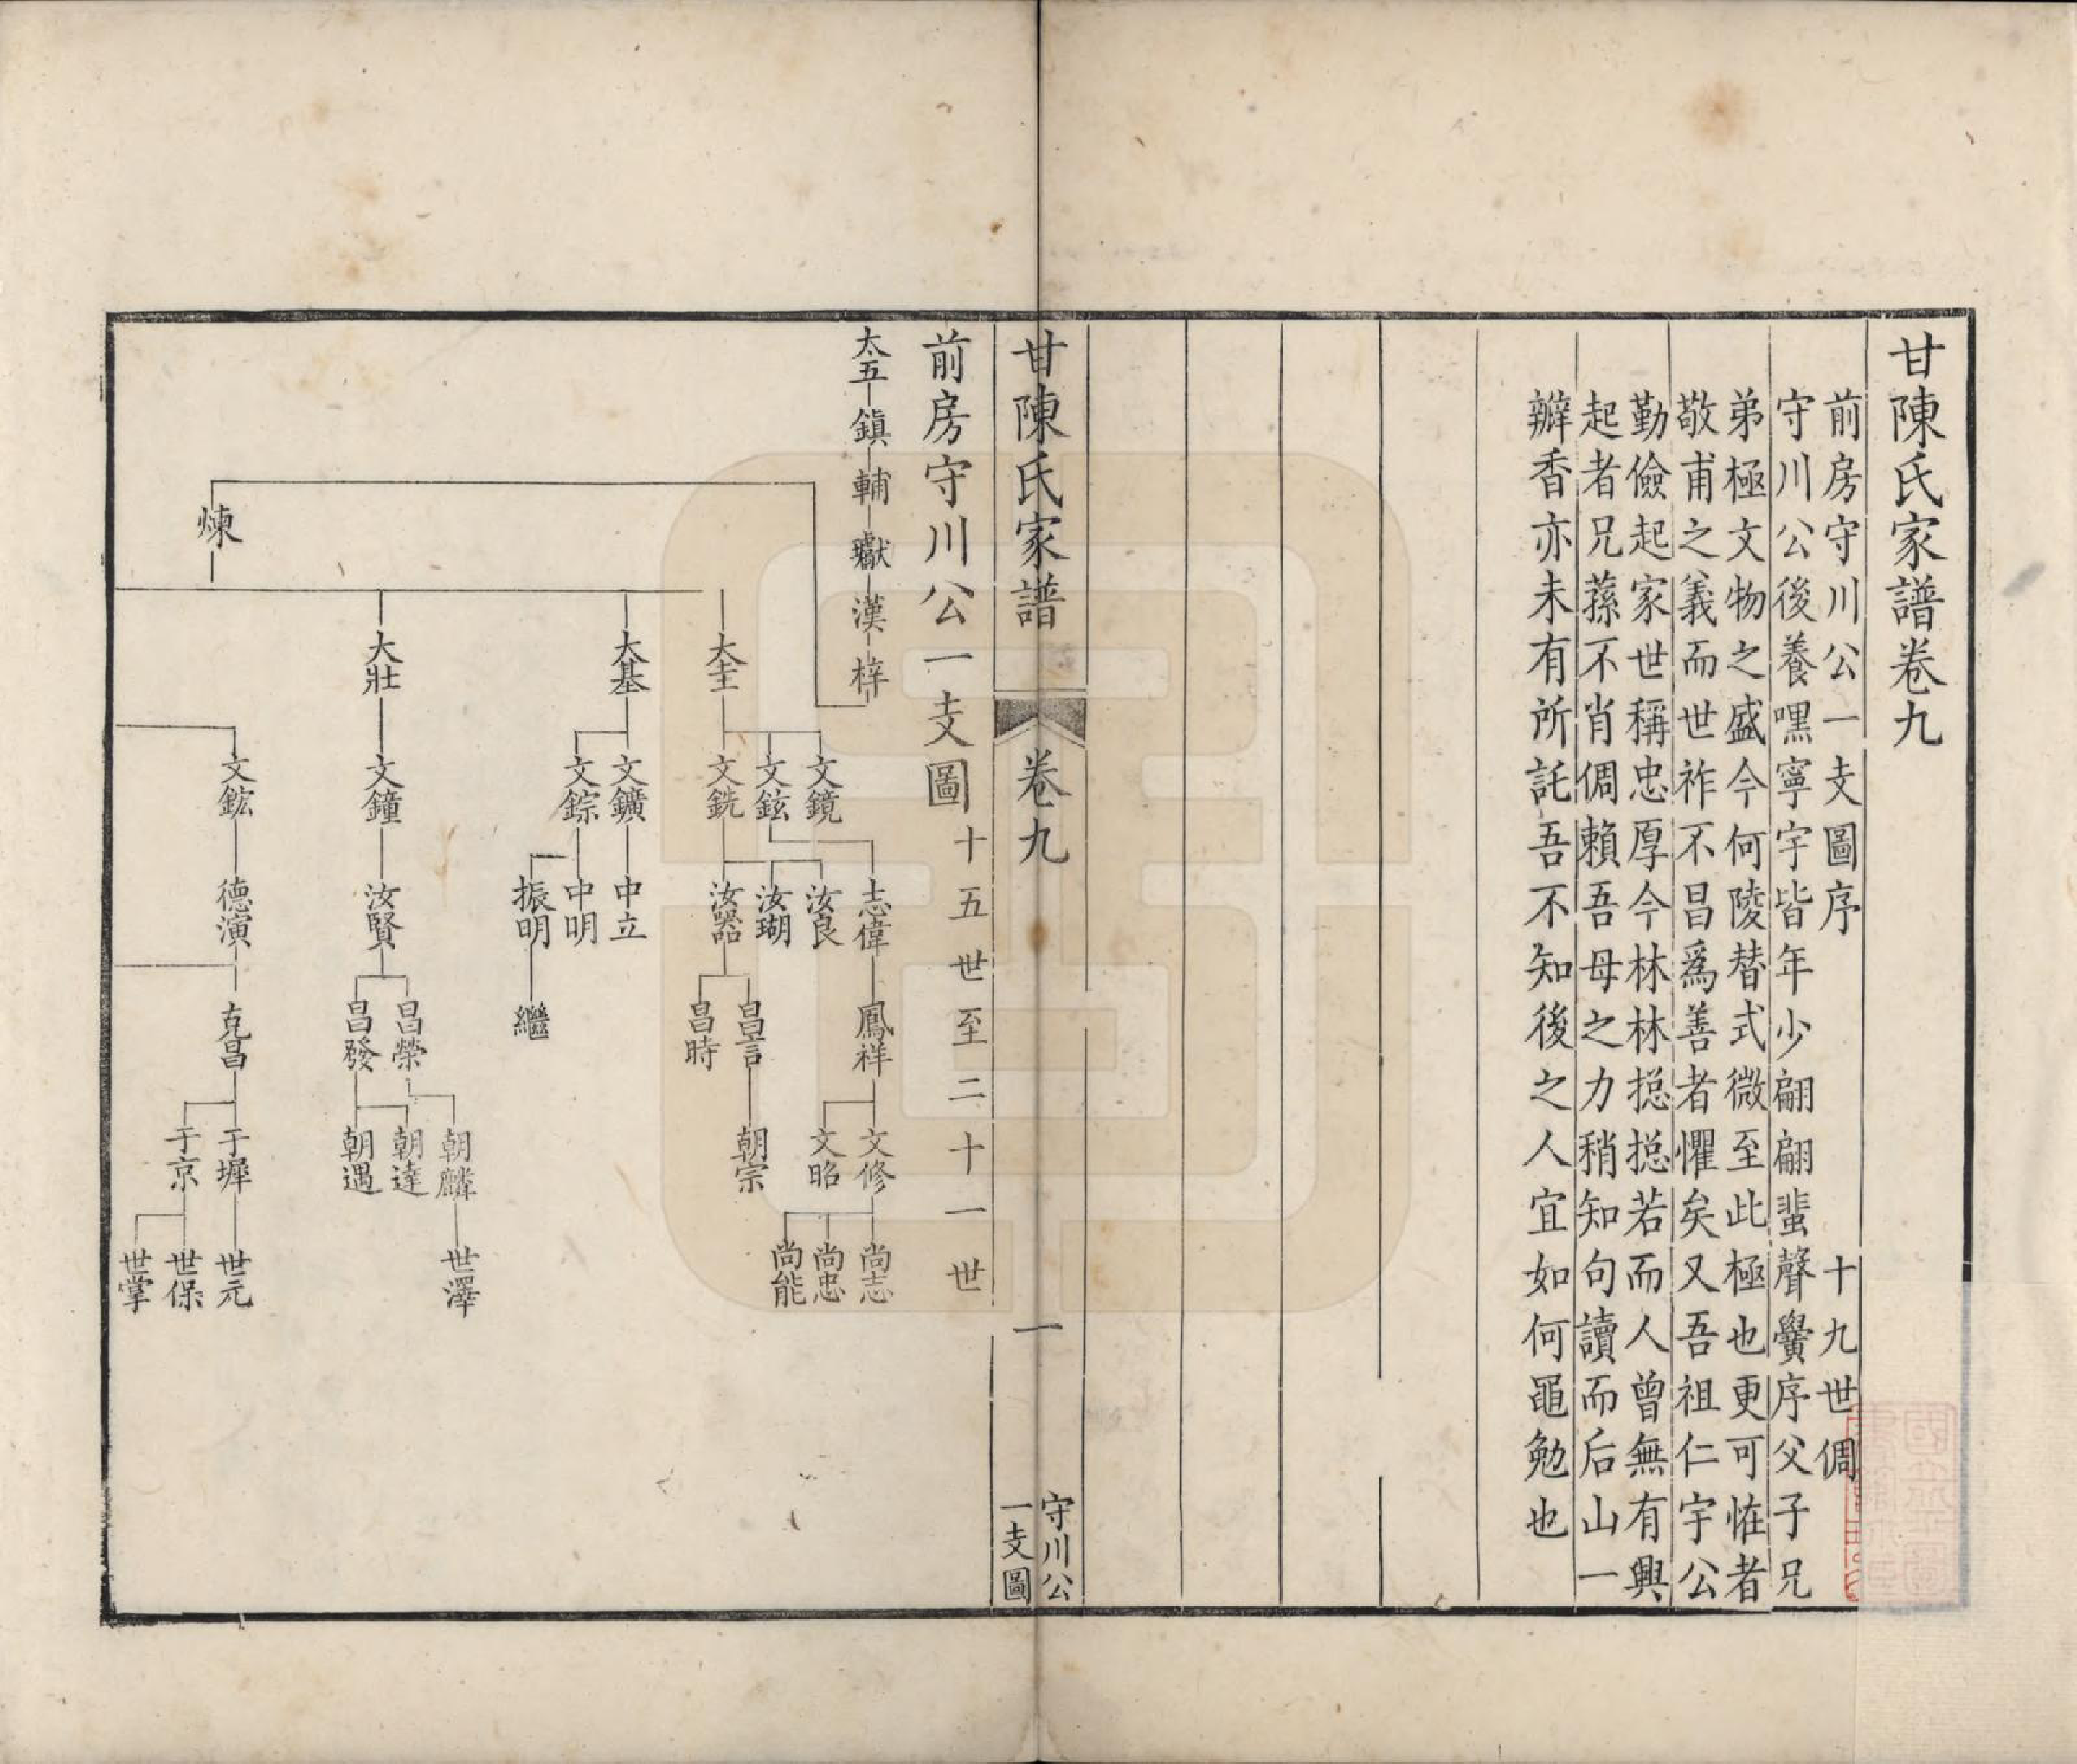 甘陳氏家譜卷九
前房守川公一支圖序 十九世倜
守川公後養嘿寧宇皆年少翩翩蜚聲黌序父子兄
弟極文物之盛今何陵替式微至此極也更可恠者
敬甫之義而世祚不昌爲善者懼矣又吾祖仁宇公
勤儉起家世稱忠厚今林林揔揔若而人曾無有興
起者兄蓀不肖倜賴吾母之力稍知句讀而后山一
辦香亦未有所託吾不知後之人宜如何黽勉也
甘陳氏家譜 卷九 一 守川公一支圖
前房守川公一支圖 十五世至二十一世
太五 鎮 輔 巘 漢 梓
煉
大奎 大基 大壯
文鏡 文鉉 文銑 文鑛 文錝 文鐘 文鈜
志偉 汝良 汝瑚 汝器 中立 中明 振明 汝賢 德演
鳳祥 昌言 昌時 繼 昌榮 昌發 克昌
文修 文昭 朝宗 朝麟 朝達 朝遇 于墀 于京
尚志 尚忠 尚能 世澤 世元 世保 世掌